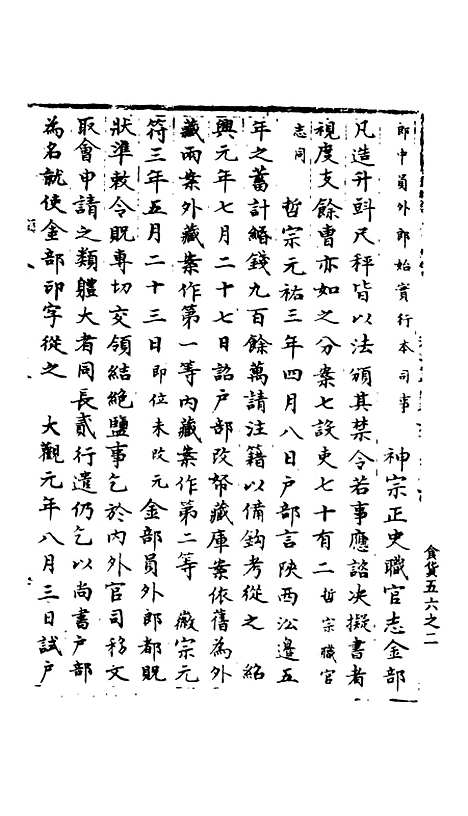 食貨五六之二
郎中員外郎始實行本司事　神宗正史職官志金部
凡造升㪷尺秤皆以法頒其禁令若事應詔决擬書者
視度支餘曹亦如之分案七設吏七十有二哲宗職官
志同　哲宗元祐三年四月八日户部言陝西㳂邊五
年之蓄計緡錢九百餘萬請注籍以備鈎考從之　紹
興元年七月二十七日詔户部改帑藏庫案依舊為外
藏兩案外藏案作第一等內藏案作第二等　徽宗元
符三年五月二十三日即位未改元金部員外郎都貺
狀準敕令貺專切交領結絶鹽事乞於內外官司移文
取會申請之類體大者同長貳行遣仍乞以尚書户部
為名就使金部印字從之　大觀元年八月三日試户